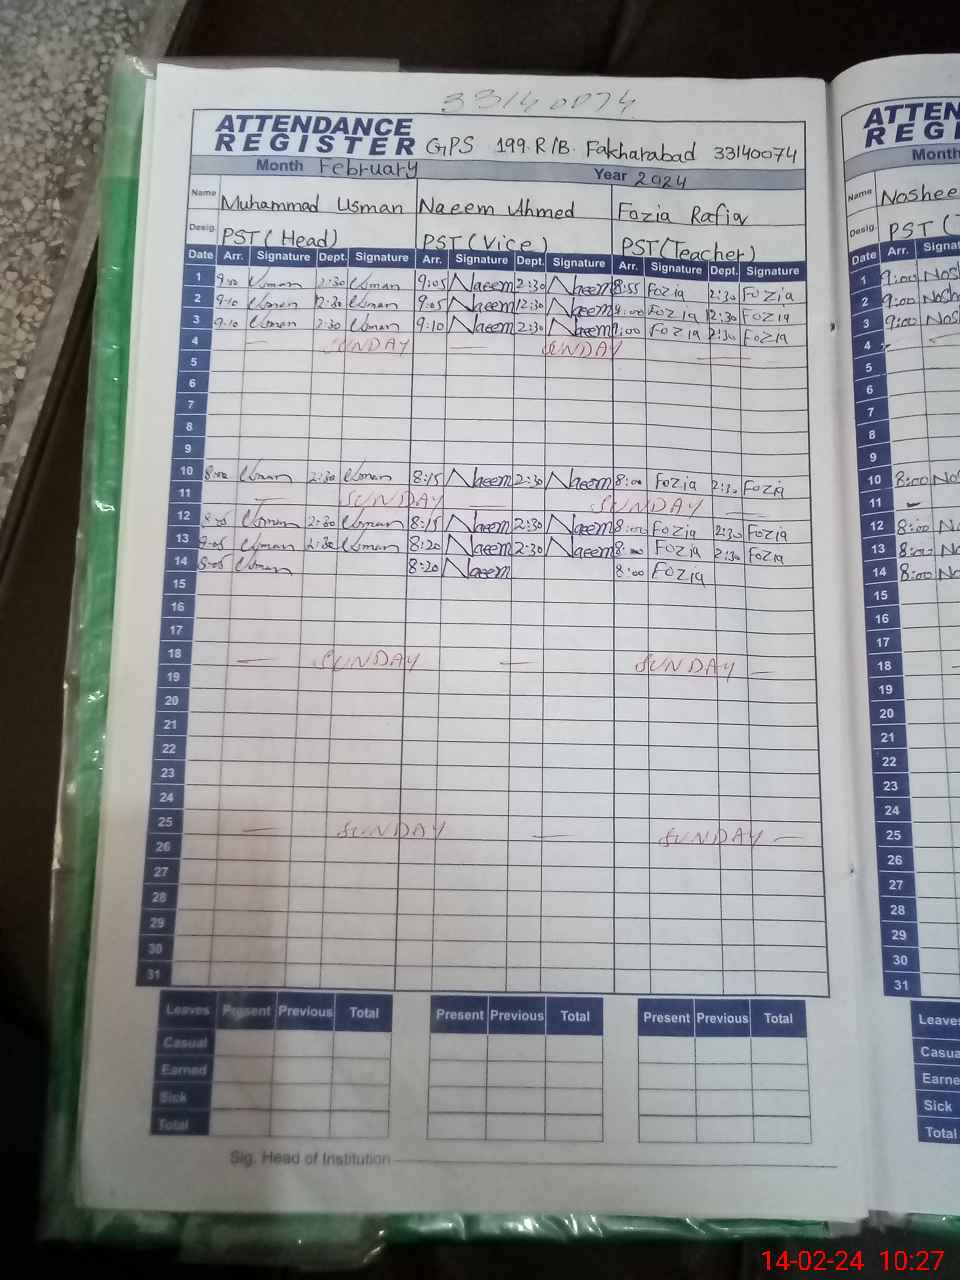 33140074
ATTENDANCE
REGISTER GPS 199 R/B. Fakharabad 33140074
Month February Year 2024
Name Muhammad Usman Naeem Ahmed Fozia Rafiq
Desig. PST (Head) PST (Vice) PST (Teacher)
Date Arr. Signature Dept. Signature Arr. Signature Dept. Signature Arr. Signature Dept. Signature
1 9:10 Usman 2:30 Usman 9:05 Naeem 2:30 Naeem 8:55 Fozia 2:30 Fozia
2 9:10 Usman 2:30 Usman 9:05 Naeem 2:30 Naeem 9:00 Fozia 2:30 Fozia
3 9:10 Usman 2:30 Usman 9:10 Naeem 2:30 Naeem 9:00 Fozia 2:30 Fozia
4 — SUNDAY — SUNDAY —
5
6
7
8
9
10 Usman 2:30 Usman 8:15 Naeem 2:30 Naeem 8:00 Fozia 2:30 Fozia
11 — SUNDAY — SUNDAY —
12 Usman 2:30 Usman 8:15 Naeem 2:30 Naeem 8:00 Fozia 2:30 Fozia
13 Usman 2:30 Usman 8:20 Naeem 2:30 Naeem 8:00 Fozia 2:30 Fozia
14 8:05 Usman 8:20 Naeem 8:00 Fozia
15
16
17
18 — SUNDAY — SUNDAY —
19
20
21
22
23
24
25 — SUNDAY — SUNDAY —
26
27
28
29
30
31
Leaves Present Previous Total Present Previous Total Present Previous Total
Casual
Earned
Sick
Total
Sig. Head of Institution
ATTEN
REGI
Month
Name Noshee
Desig. PST (T
Date Arr. Signat
1 9:00 Nos
2 9:00 Nosh
3 9:00 Nos
4
5
6
7
8
9
10 8:00 No
11 —
12 8:00 No
13 8:00 No
14 8:00 No
15
16
17
18
19
20
21
22
23
24
25
26
27
28
29
30
31
Leaves
Casua
Earne
Sick
Total
14-02-24 10:27